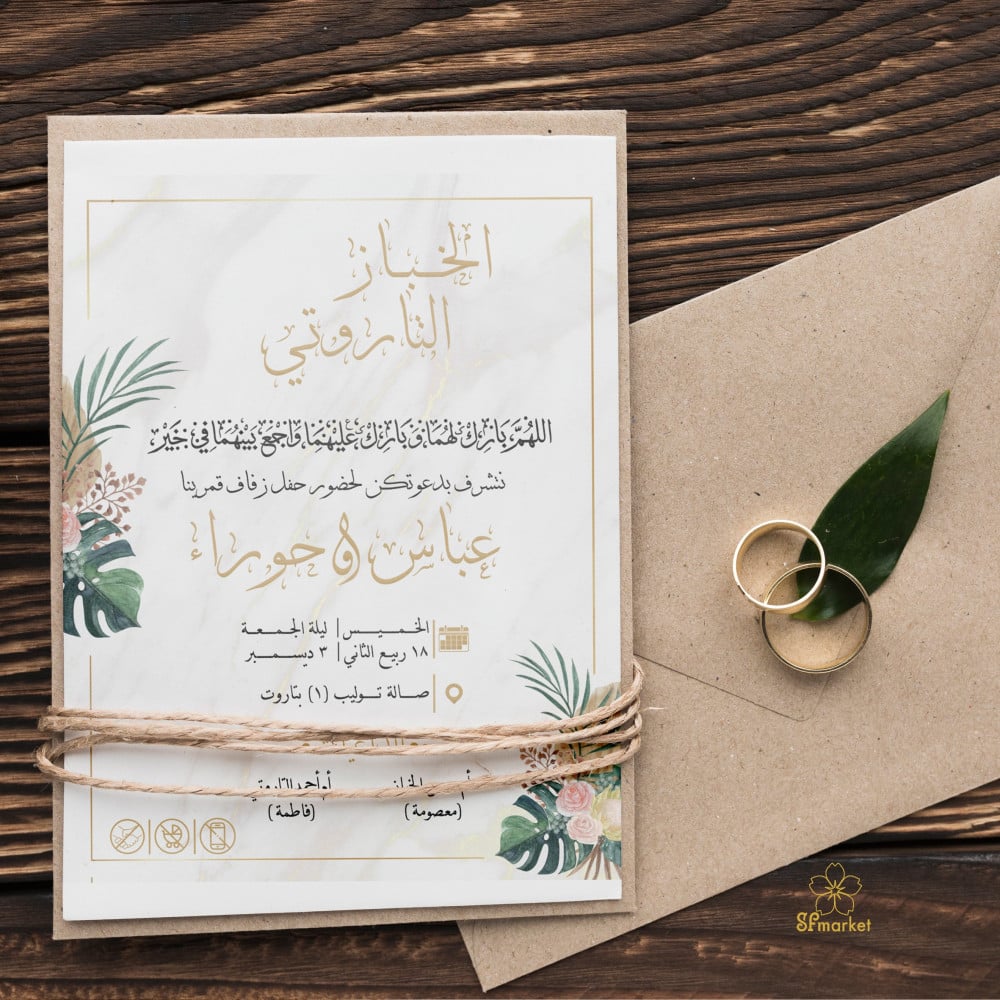 الخباز
التاروتي
اللهُمَّ بَارِكْ لَهُمَا وَ بَارِكْ عَلَيْهِمَا وَاجْمَعْ بَيْنَهُمَا فِي خَيْرْ
نتشرف بدعوتكن لحضور حفل زفاف قمرينا
عباس و حوراء
الخميس | ليلة الجمعة
١٨ ربيع الثاني | ٣ ديسمبر
صالة توليب (١) بتاروت
الخباز
أم أحمد التاروتي
(معصومة)
(فاطمة)
SF market